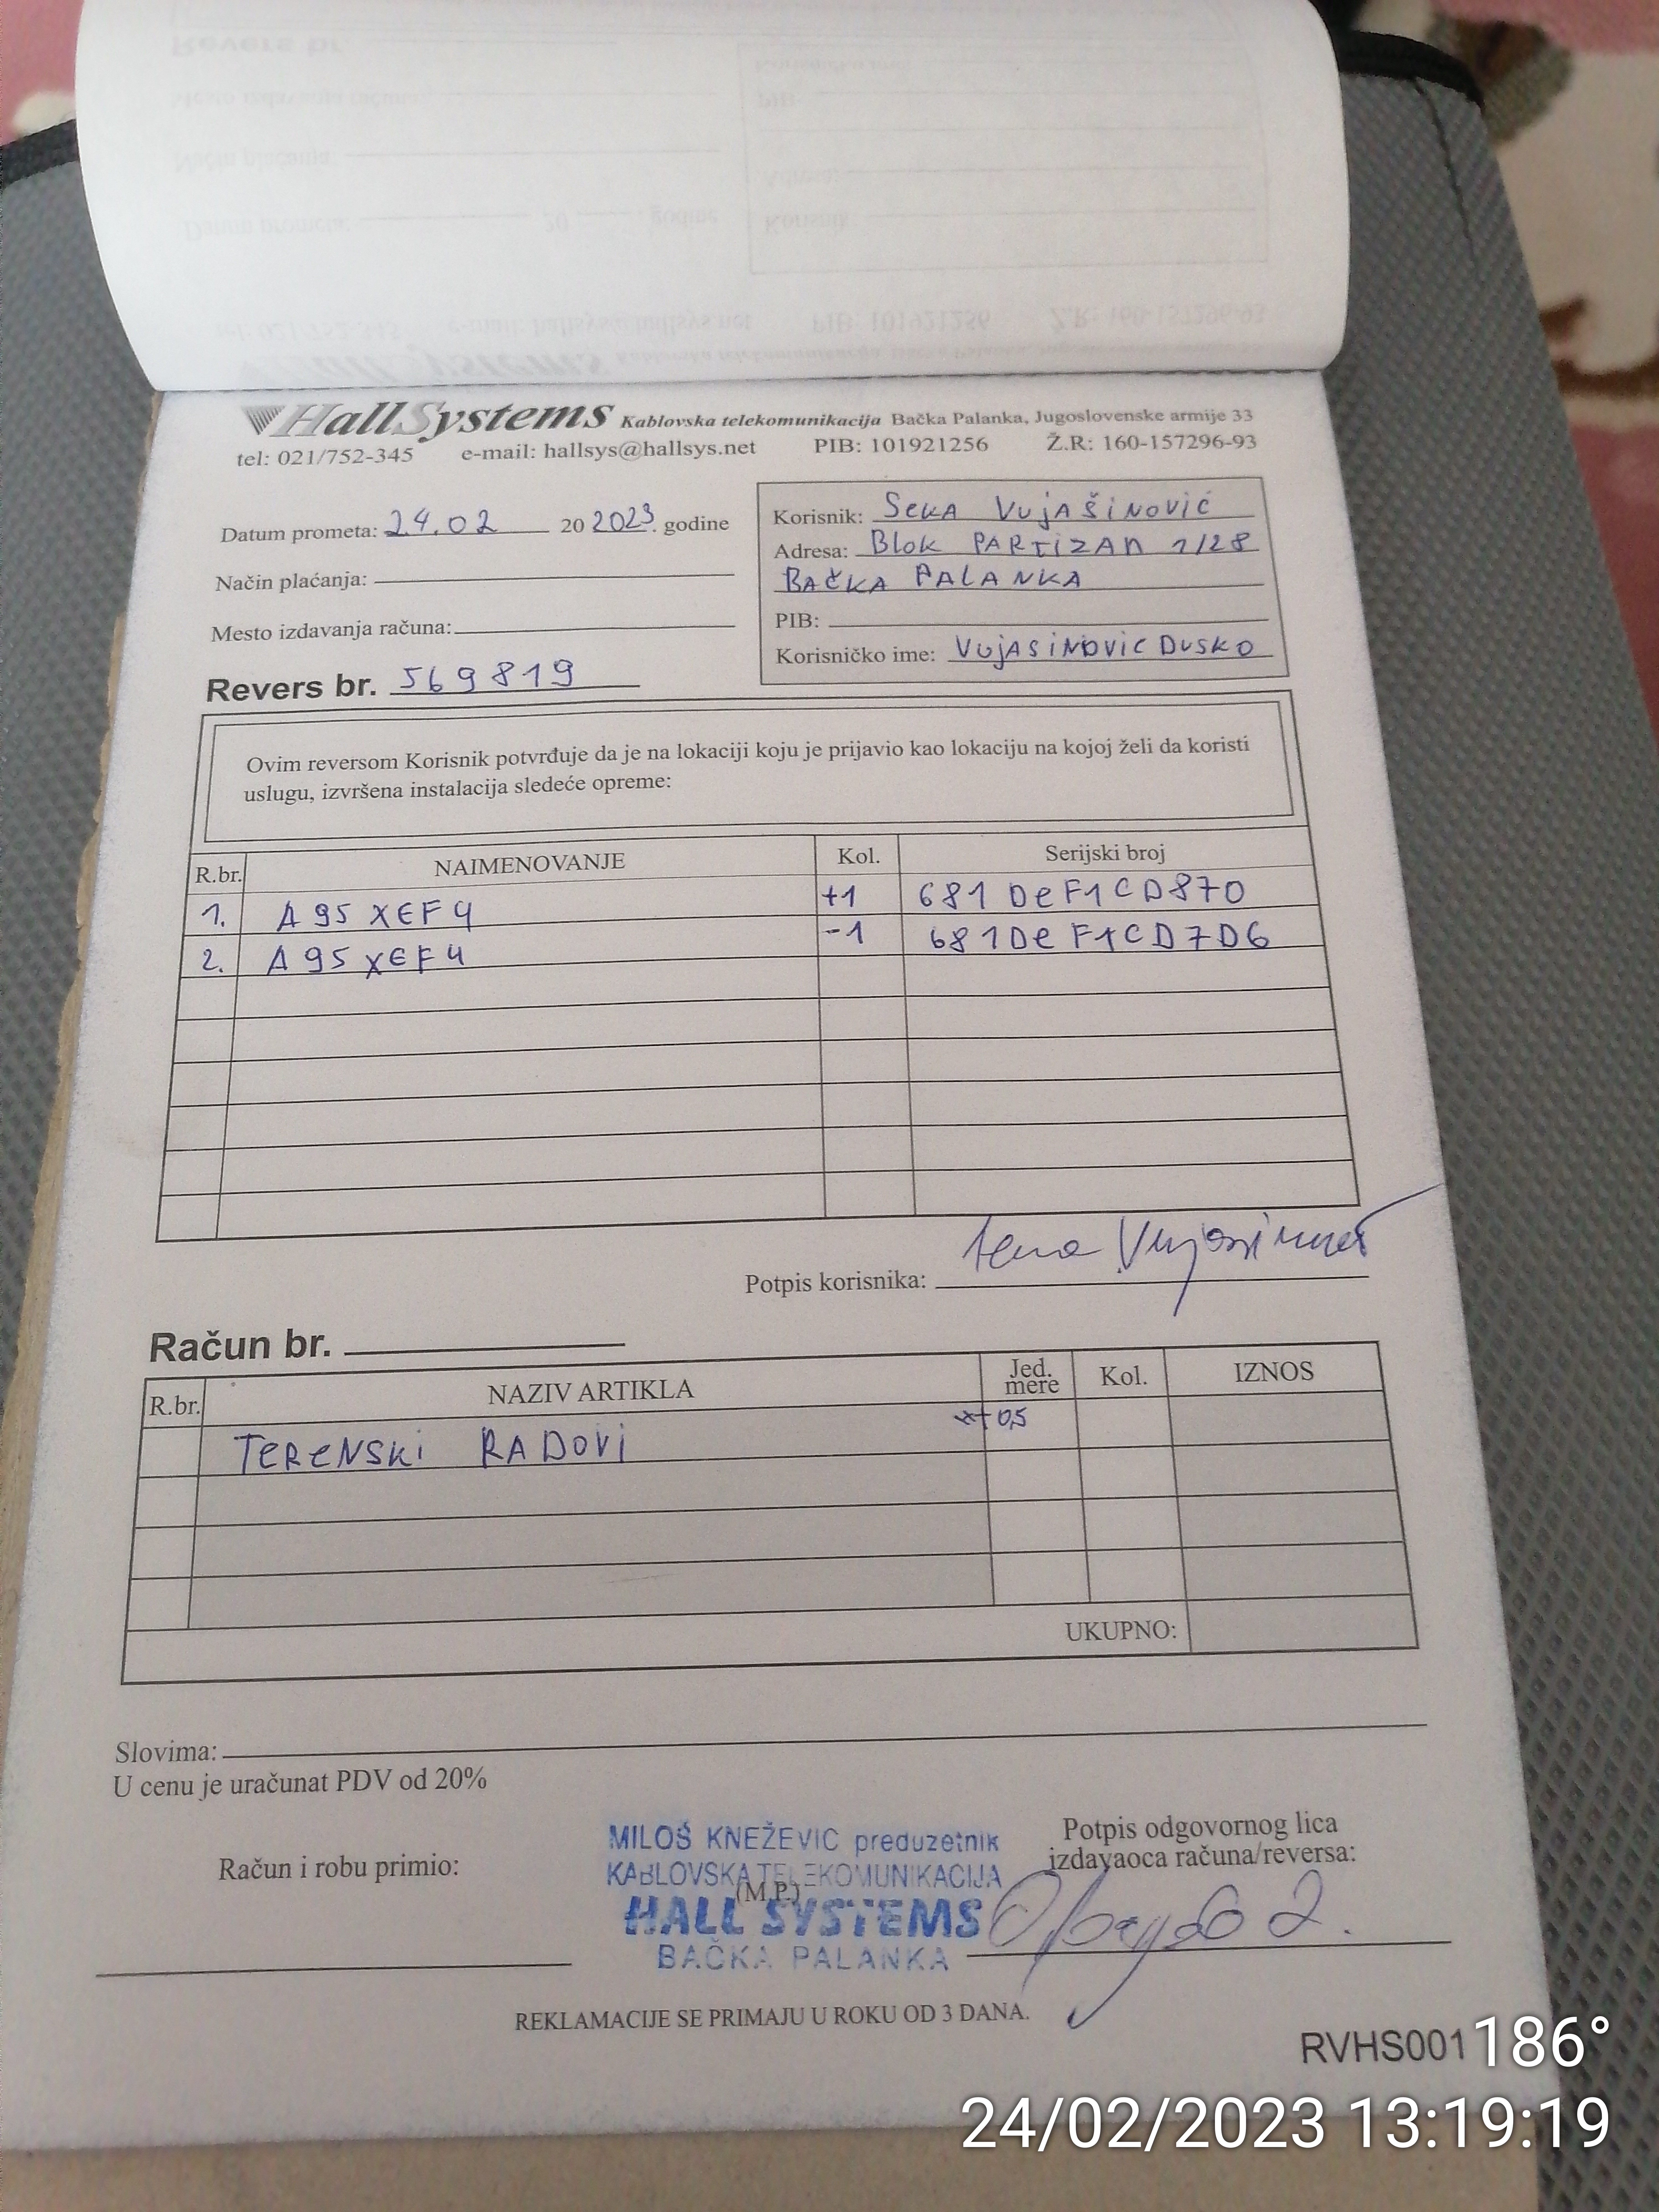 HallSystems Kablovska telekomunikacija Bačka Palanka, Jugoslovenske armije 33
tel: 021/752-345 e-mail: hallsys@hallsys.net PIB: 101921256 Ž.R: 160-157296-93
Datum prometa: 24.02 20 2023. godine
Način plaćanja:
Mesto izdavanja računa:
Revers br. 569819
Korisnik: SeKA VujAŠiNoVić
Adresa: Blok PARTiZAn 1/28
BAČKA PALANKA
PIB:
Korisničko ime: VUjASiNOVic DUSKO
Ovim reversom Korisnik potvrđuje da je na lokaciji koju je prijavio kao lokaciju na kojoj želi da koristi
uslugu, izvršena instalacija sledeće opreme:
R.br. NAIMENOVANJE Kol. Serijski broj
1. A95XEF4 +1 681DeF1CD870
2. A95XEF4 -1 681DeF1CD7D6
Potpis korisnika:
Račun br.
R.br. NAZIV ARTIKLA Jed. mere Kol. IZNOS
TeReNSKi RADOVi 0,5
UKUPNO:
Slovima:
U cenu je uračunat PDV od 20%
Račun i robu primio:
MILOŠ KNEŽEVIC preduzetnik
KABLOVSKA TELEKOMUNIKACIJA
(M.P.)
HALL SYSTEMS
BAČKA PALANKA
Potpis odgovornog lica
izdavaoca računa/reversa:
REKLAMACIJE SE PRIMAJU U ROKU OD 3 DANA.
RVHS001
186°
24/02/2023 13:19:19